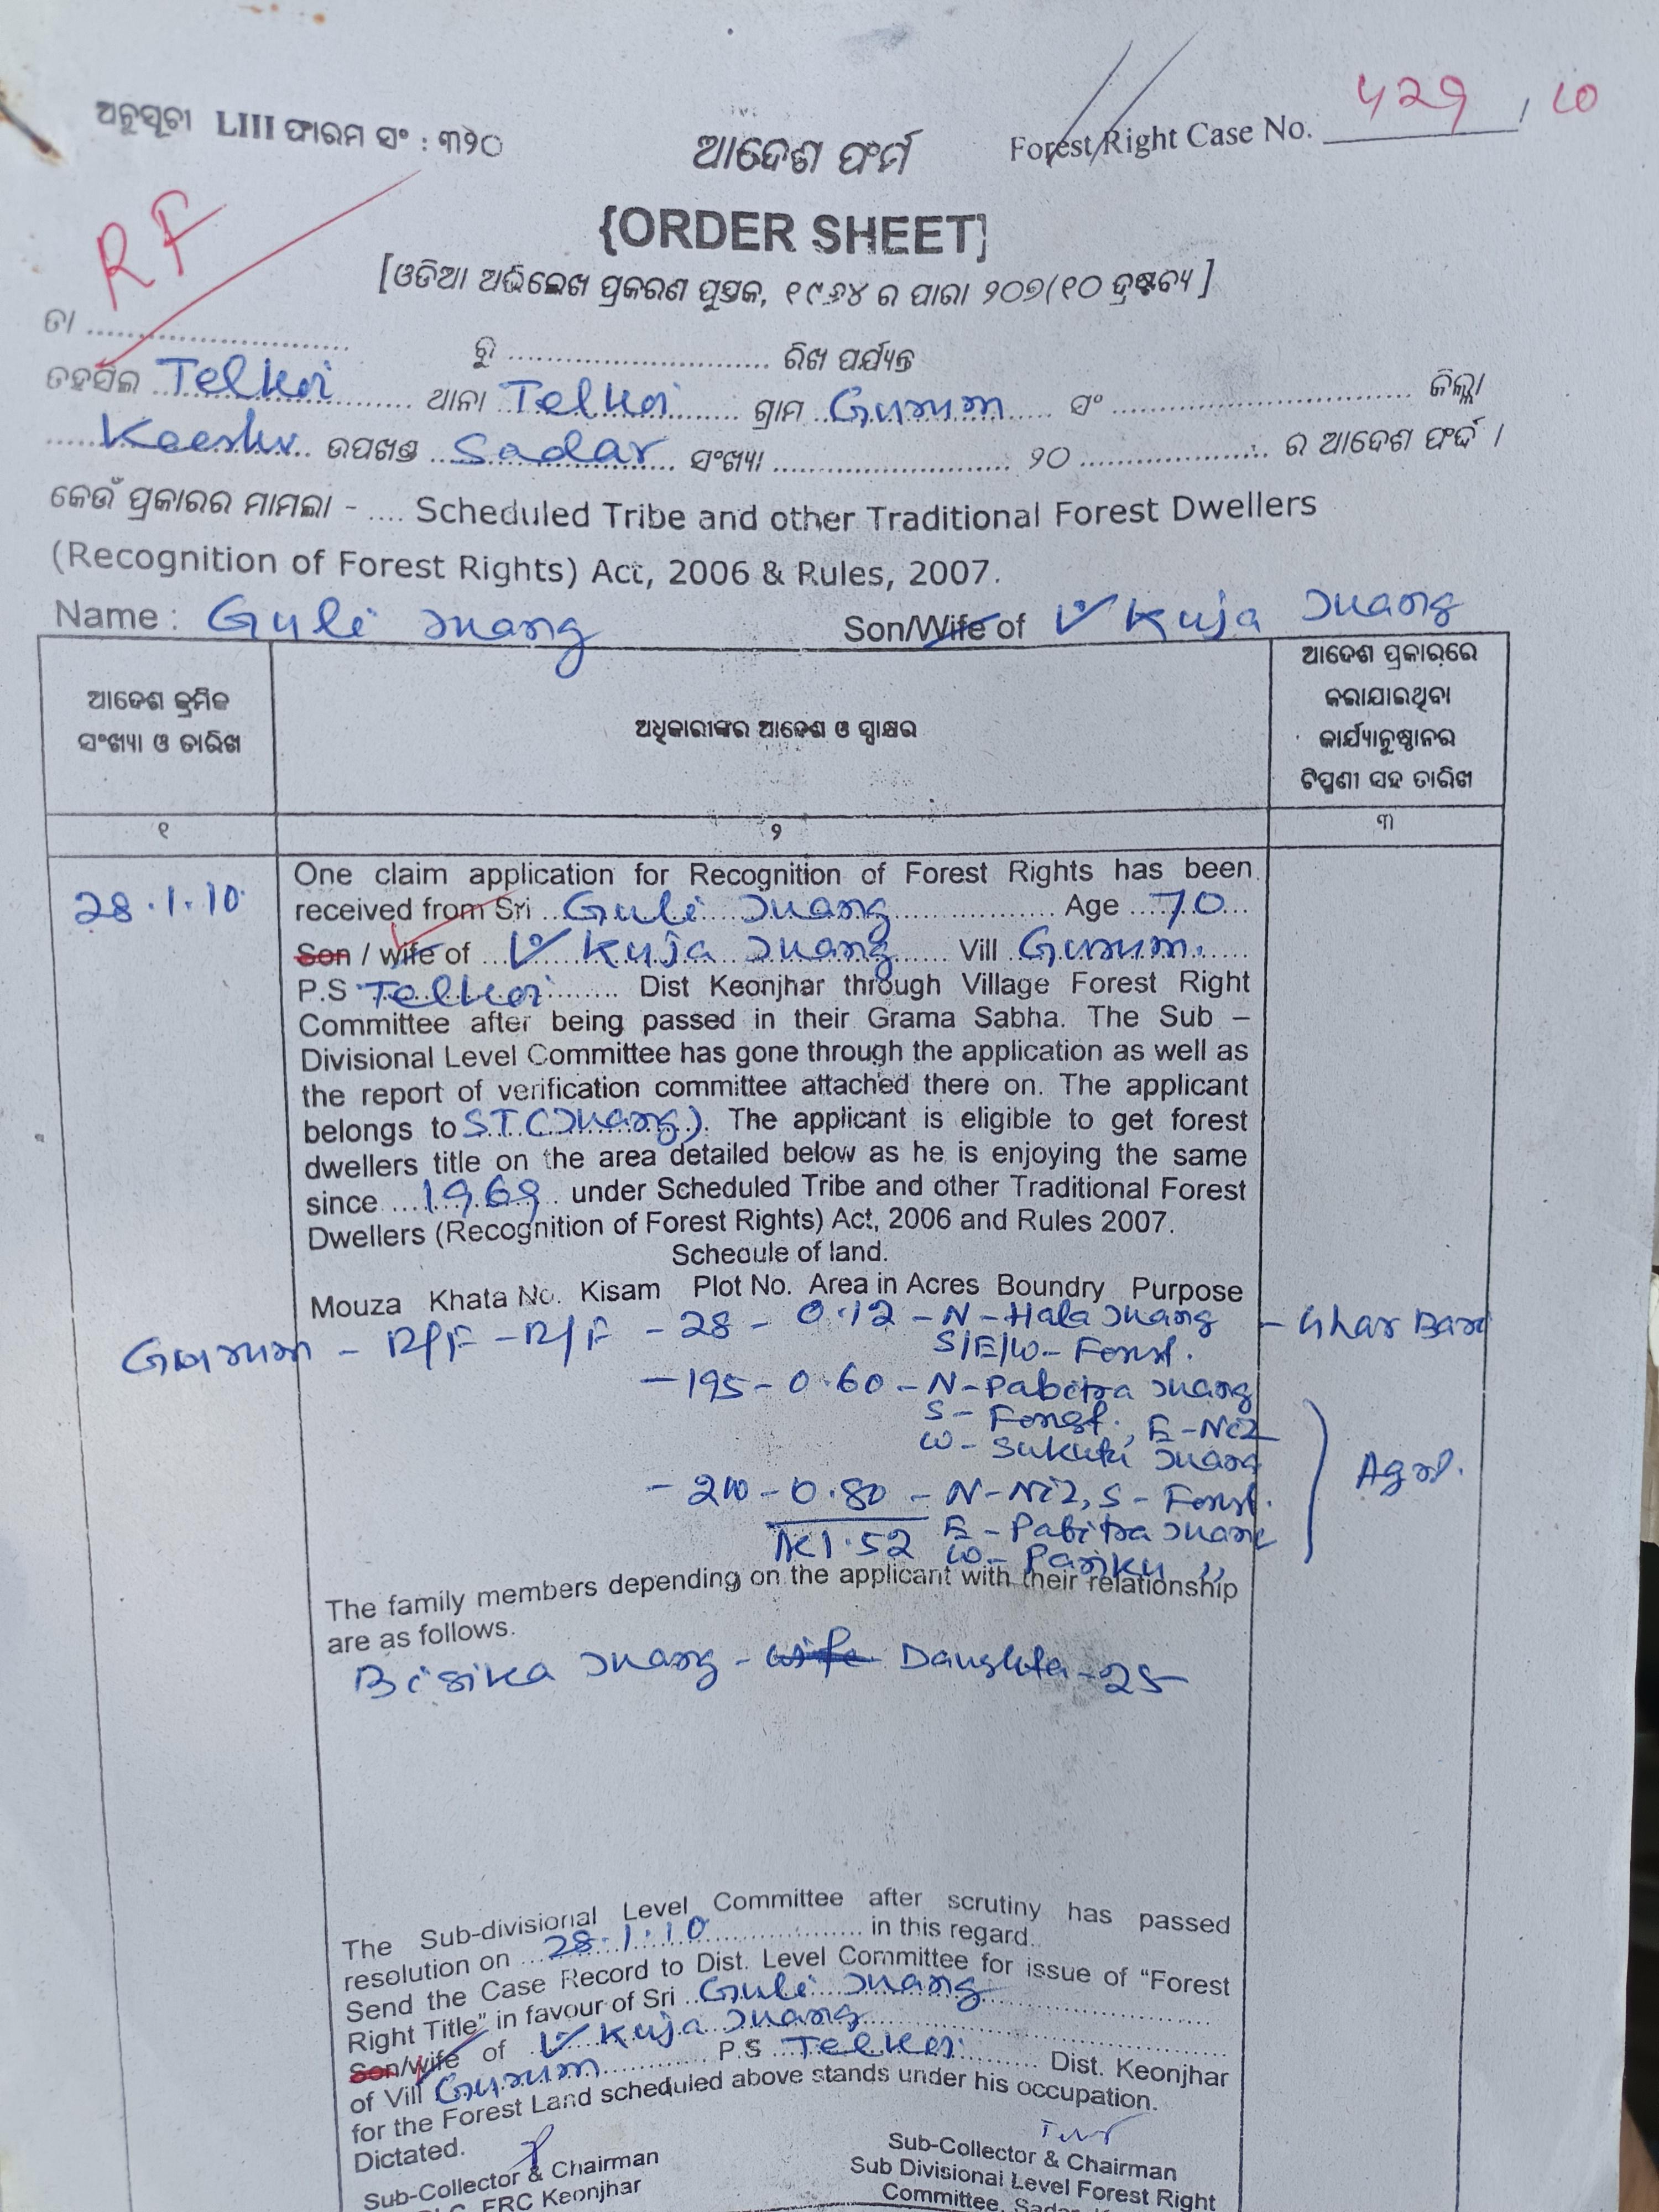 ଅନୁସୂଚୀ LIII ଫାରମ ସଂ : ୩୨୦
Forest Right Case No. 429 / 10
ଆଦେଶ ଫର୍ମ
{ORDER SHEET]
RF
[ଓଡିଆ ଅଭିଲେଖ ପ୍ରକରଣ ପୁସ୍ତକ, ୧୯୬୪ ର ପାରା ୨୦୭(୧୦ ଦ୍ରଷ୍ଟବ୍ୟ ]
ତା .......................... ରୁ .......................... ରିଖ ପର୍ଯ୍ୟନ୍ତ
ତହସିଲ Telkoi ଥାନା Telkoi ଗ୍ରାମ Gurum ସଂ .......................... ଜିଲ୍ଲା
ଉପଖଣ୍ଡ Sadar ସଂଖ୍ୟା .......................... ୨୦ .................... ର ଆଦେଶ ଫର୍ଦ୍ଦ ।
କେଉଁ ପ୍ରକାରର ମାମଲା - .... Scheduled Tribe and other Traditional Forest Dwellers
(Recognition of Forest Rights) Act, 2006 & Rules, 2007.
Name : Guli Juang Son/Wife of Kuja Juang
ଆଦେଶ କ୍ରମିକ
ସଂଖ୍ୟା ଓ ତାରିଖ
ଅଧିକାରୀଙ୍କର ଆଦେଶ ଓ ସ୍ୱାକ୍ଷର
ଆଦେଶ ପ୍ରକାରରେ
କରାଯାଇଥିବା
କାର୍ଯ୍ୟାନୁଷ୍ଠାନର
ଟିପ୍ପଣୀ ସହ ତାରିଖ
୧ ୨ ୩
28.1.10
One claim application for Recognition of Forest Rights has been
received from Sri Guli Juang Age 70
Son / wife of Kuja Juang Vill Gurum
P.S Telkoi Dist Keonjhar through Village Forest Right
Committee after being passed in their Grama Sabha. The Sub –
Divisional Level Committee has gone through the application as well as
the report of verification committee attached there on. The applicant
belongs to ST (Juang). The applicant is eligible to get forest
dwellers title on the area detailed below as he is enjoying the same
since 1969 under Scheduled Tribe and other Traditional Forest
Dwellers (Recognition of Forest Rights) Act, 2006 and Rules 2007.
Schedule of land.
Mouza Khata No. Kisam Plot No. Area in Acres Boundry Purpose
Gurum - R/F - R/F - 28 - 0.12 - N - Hala Juang - Ghar Bari
S/E/W - Forest.
- 195 - 0.60 - N - Pabitra Juang
S - Forest, E - Niz
W - Sukuti Juang
Agrl.
- 210 - 0.80 - N - Niz, S - Forest.
1.52 E - Pabitra Juang
W - Panku ,,
The family members depending on the applicant with their relationship
are as follows.
Juang - wife Daughter - 25
The Sub-divisional Level Committee after scrutiny has passed
resolution on 28.1.10 in this regard.
Send the Case Record to Dist. Level Committee for issue of "Forest
Right Title" in favour of Sri Guli Juang
Son/wife of Kuja Juang
of Vill Gurum P.S Telkoi Dist. Keonjhar
for the Forest Land scheduled above stands under his occupation.
Dictated.
Sub-Collector & Chairman
FRC Keonjhar
Sub-Collector & Chairman
Sub Divisional Level Forest Right
Committee,